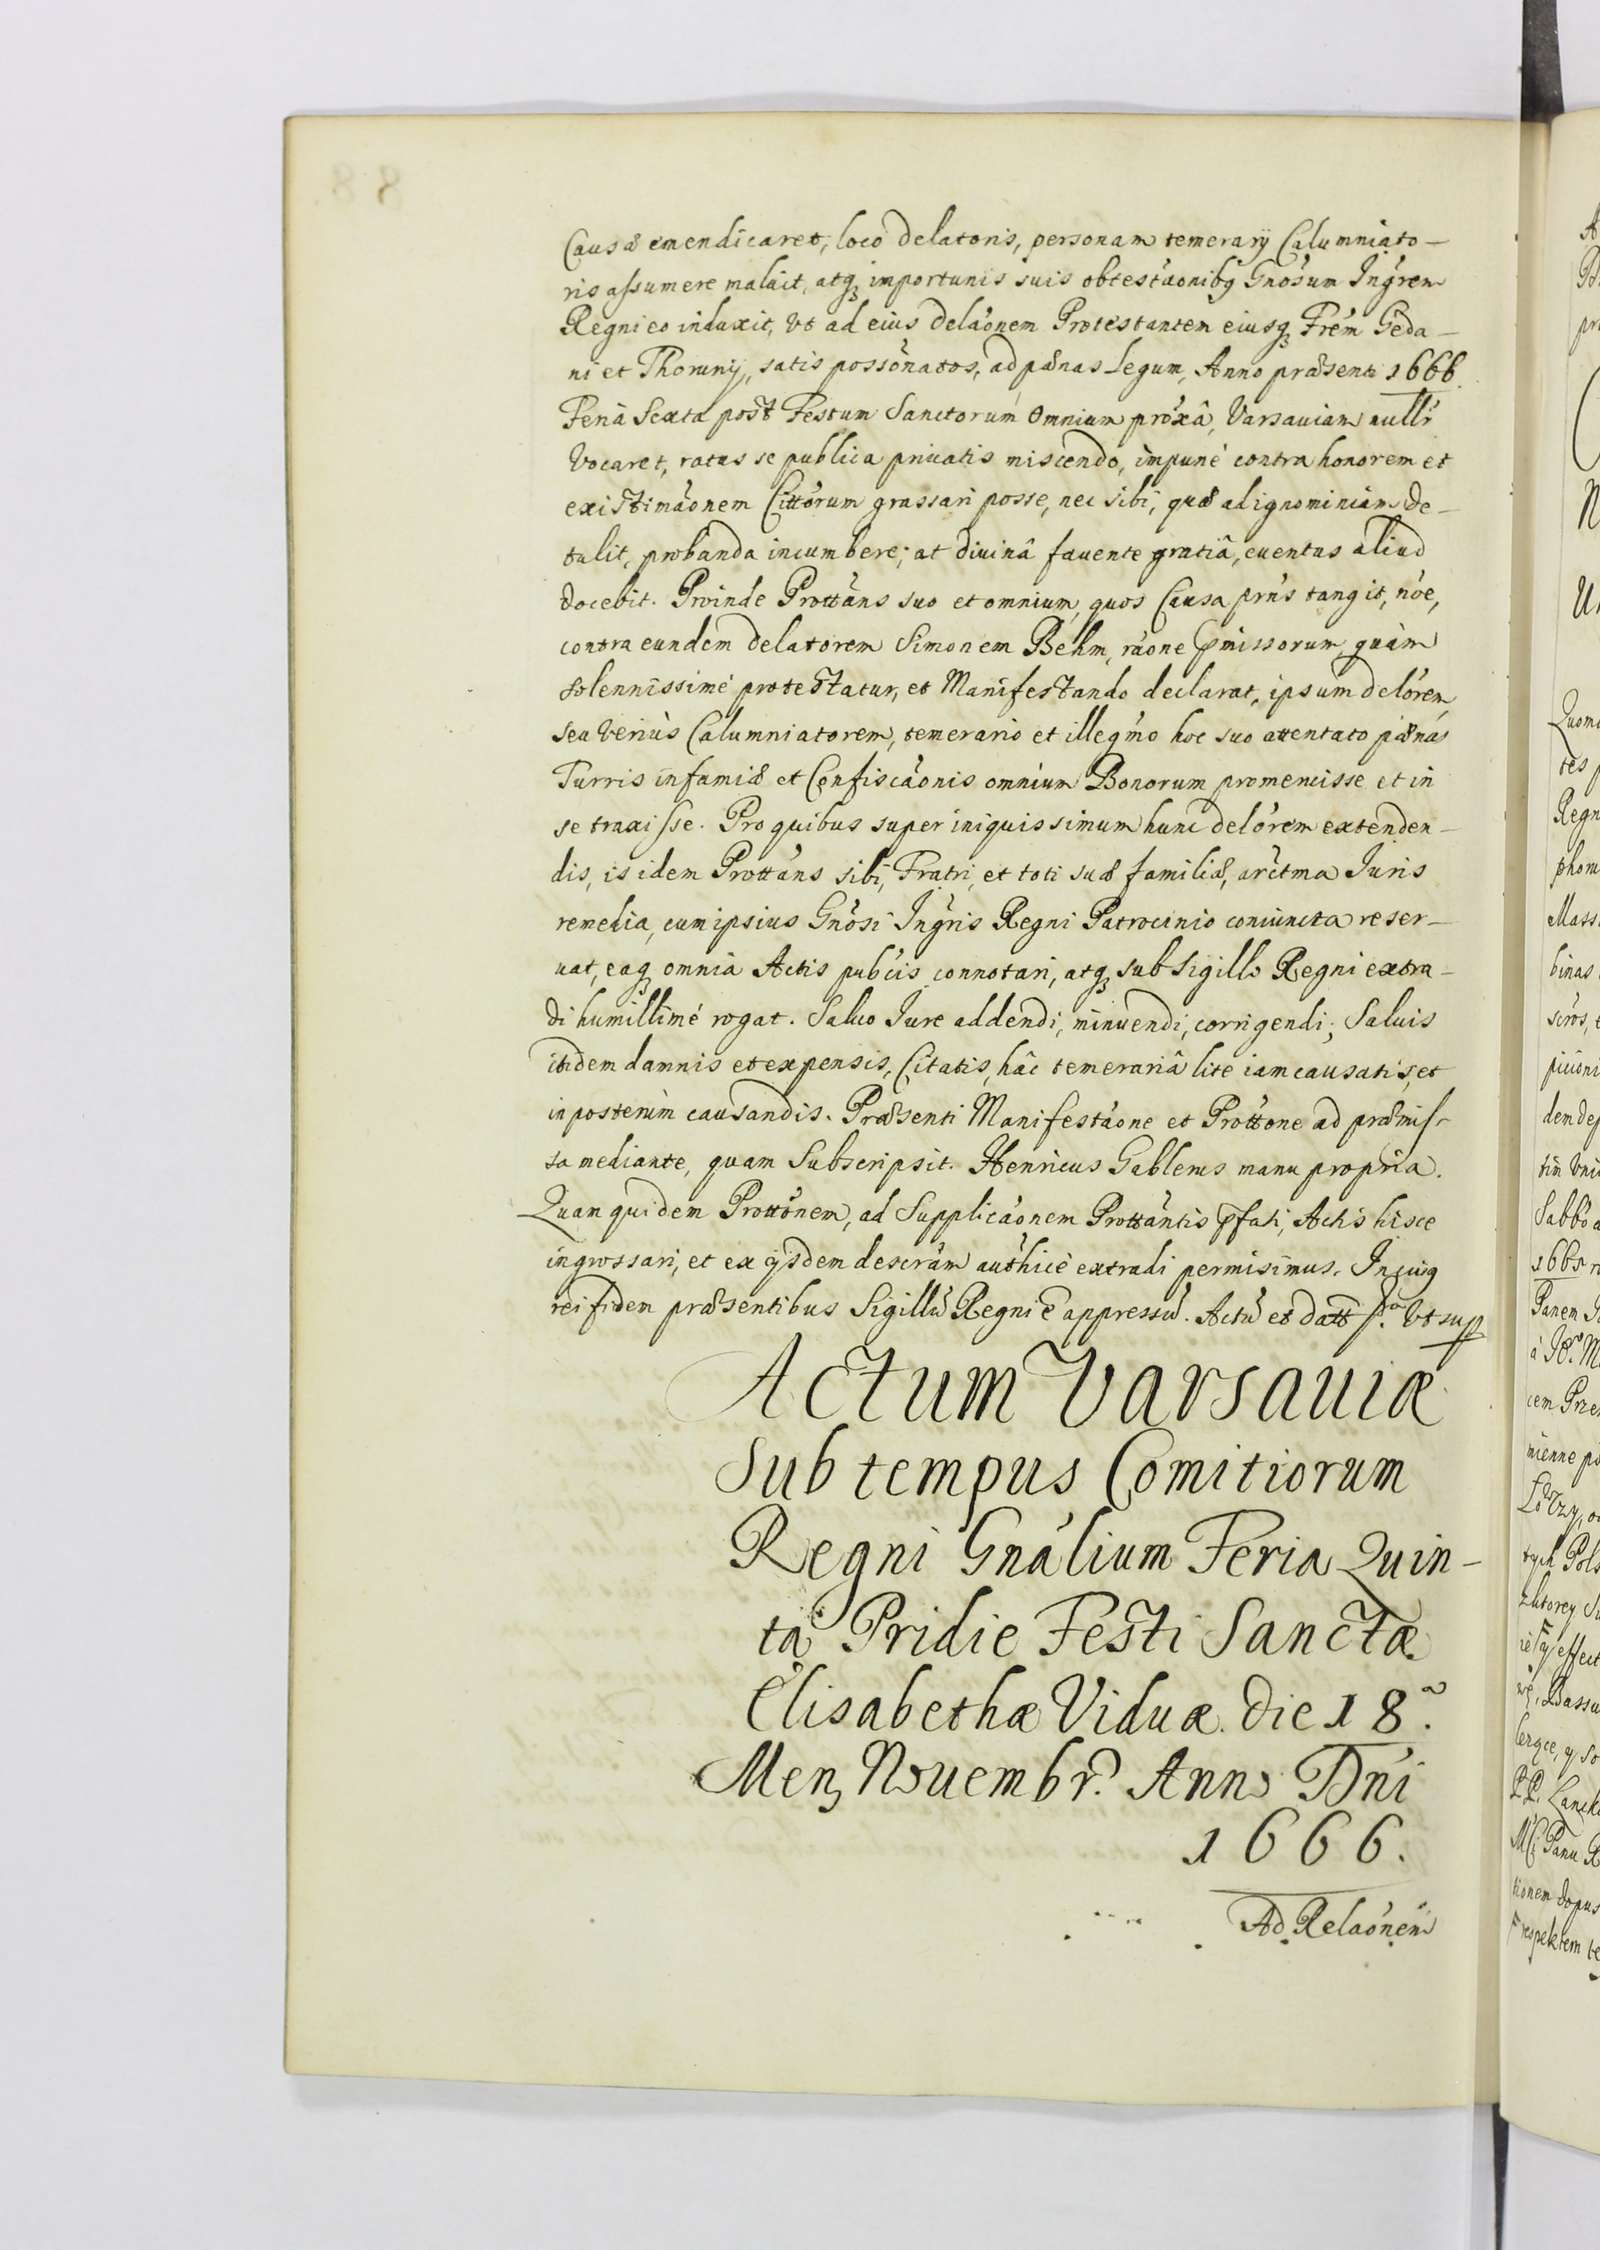 Causæ emendicaret, loco delatoris, personam temerarÿ Calumniato-
ris assumere maluit, atqȝ importunis suis obtestãonibȝ Gnõsum Ingrem
Regni eo induxit, Vt ad eius delãonem Protestantem eiusqȝ Frem Geda-
ni et Thorunÿ, satis possõnatos, ad pænas Legum, Anno præsenti 1666.
Feria Sexta post Festum Sanctorum Omnium proxâ, Varsauiam nullr
Vocaret, ratus se publica priuatis miscendo, impunè contra honorem et
existimãonem Cittõrum grassari posse, nec sibi, quæ ad ignominiam de-
tulit, probanda incumbere; at diuinâ fauente gratiâ, euentus aliud
docebit. Proinde Prottãns suo et omnium, quos Causa prñs tangit, nõe,
contra eundem delatorem Simonem Behm, rãone pmissorum, quàm
solennissimè protestatur, et Manifestando declarat, ipsum delõrem,
seu Veriùs Calumniatorem, temerario et illegmo hoc suo attentato pænas
Turris infamiæ et Confiscãonis omnium Bonorum promeruisse et in
se traxisse. Pro quibus super iniquissimum hunc delõrem extenden-
dis, is idem Prottãns sibi, Fratri, et toti suæ familiæ, arctma Iuris
remedia, cum ipsius Gnõsi Ingris Regni Patrocinio coniuncta reser-
uat, eaqȝ omnia Actis pubcis connotari, atqȝ sub Sigillo Regni extra-
di humillimè rogat. Saluo Iure addendi, minuendi, corrigendi; Saluis
itidem damnis et expensis, Citatis, hâc temerariâ lite iam causatis, et
in posterum causandis. Præsenti Manifestãone et Prottõne ad præmis-
sa mediante, quam Subscripsit. Henricus Gablerus manu propria.
Quam quidem Prottõnem, ad Supplicãonem Prottãntis pfati, Actis hisce
ingrossari, et ex ÿsdem descrãm authicè extradi permisimus. In cuiȝ
rei fidem præsentibus Sigillũ Regni ẽ appressũ. Actũ et datt Vt sup
Actum Varsauiæ
Sub tempus Comitiorum
Regni Gnãlium Feria Quin-
ta Pridie Festi Sanctæ
Elisabethæ Viduæ. die 18.ª
Menȝ Nouembr. Anno Dñi
1666.
Ad Relaõnem